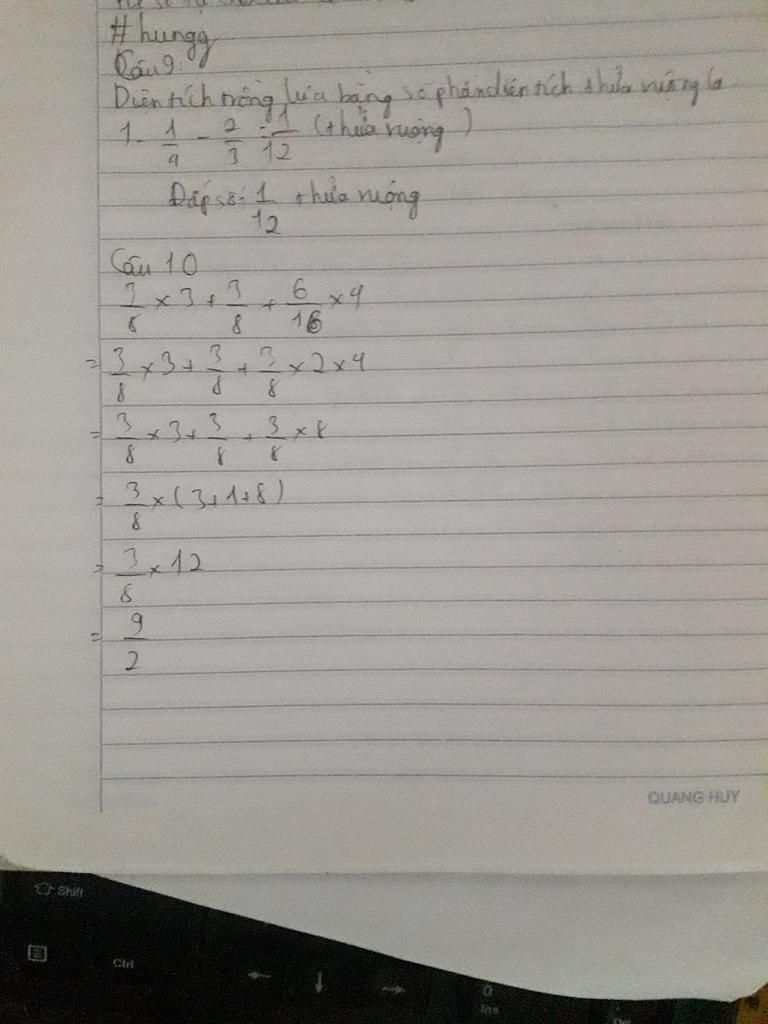 # hungg
Câu 9:
Diện tích trồng lúa bằng số phần diện tích thửa ruộng là
1 - 1/4 - 2/3 = 1/12 (thửa ruộng)
Đáp số: 1/12 thửa ruộng
Câu 10
3/8 × 3 + 3/8 + 6/16 × 4
= 3/8 × 3 + 3/8 + 3/8 × 2 × 4
= 3/8 × 3 + 3/8 + 3/8 × 8
= 3/8 × (3+1+8)
= 3/8 × 12
= 9/2
QUANG HUY
Shift
Ctrl
← ↓ →
0
Ins